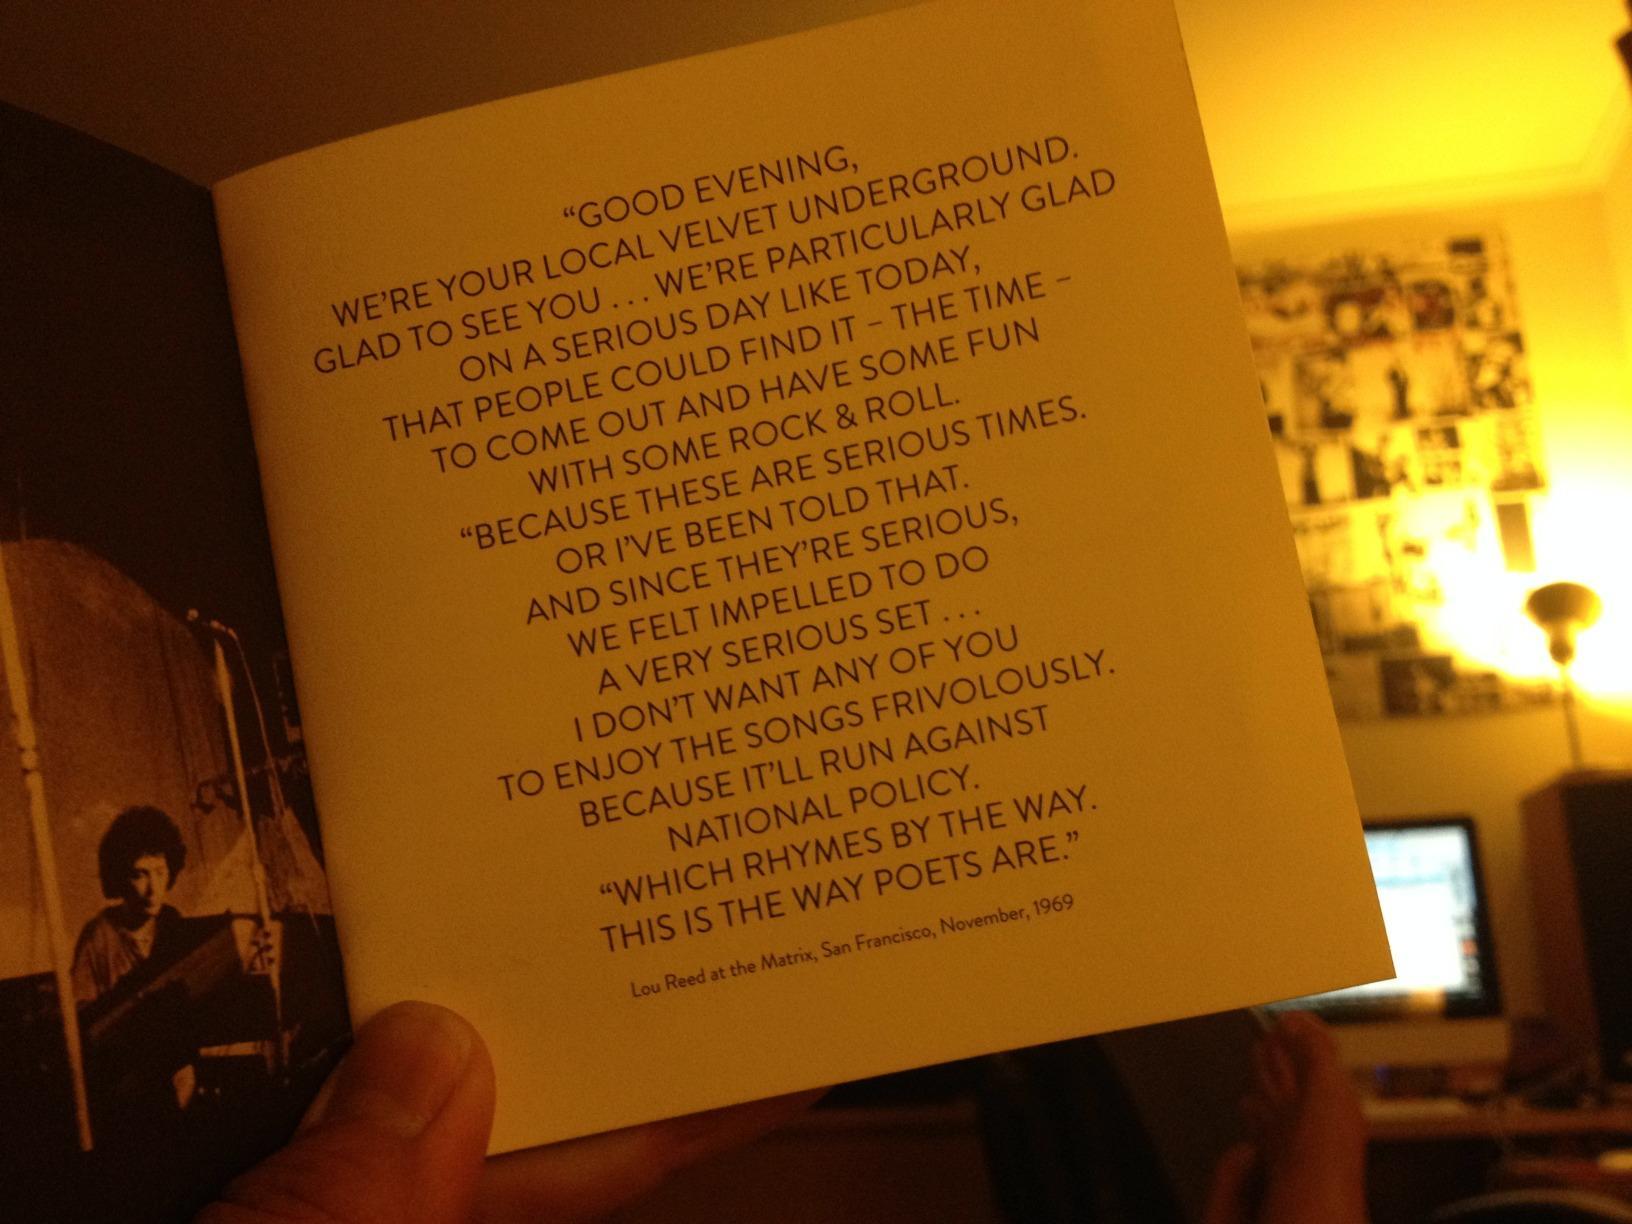 “GOOD EVENING,
WE’RE YOUR LOCAL VELVET UNDERGROUND.
GLAD TO SEE YOU . . . WE’RE PARTICULARLY GLAD
ON A SERIOUS DAY LIKE TODAY,
THAT PEOPLE COULD FIND IT – THE TIME –
TO COME OUT AND HAVE SOME FUN
WITH SOME ROCK & ROLL.
“BECAUSE THESE ARE SERIOUS TIMES.
OR I’VE BEEN TOLD THAT.
AND SINCE THEY’RE SERIOUS,
WE FELT IMPELLED TO DO
A VERY SERIOUS SET . . .
I DON’T WANT ANY OF YOU
TO ENJOY THE SONGS FRIVOLOUSLY.
BECAUSE IT’LL RUN AGAINST
NATIONAL POLICY.
“WHICH RHYMES BY THE WAY.
THIS IS THE WAY POETS ARE.”
Lou Reed at the Matrix, San Francisco, November, 1969